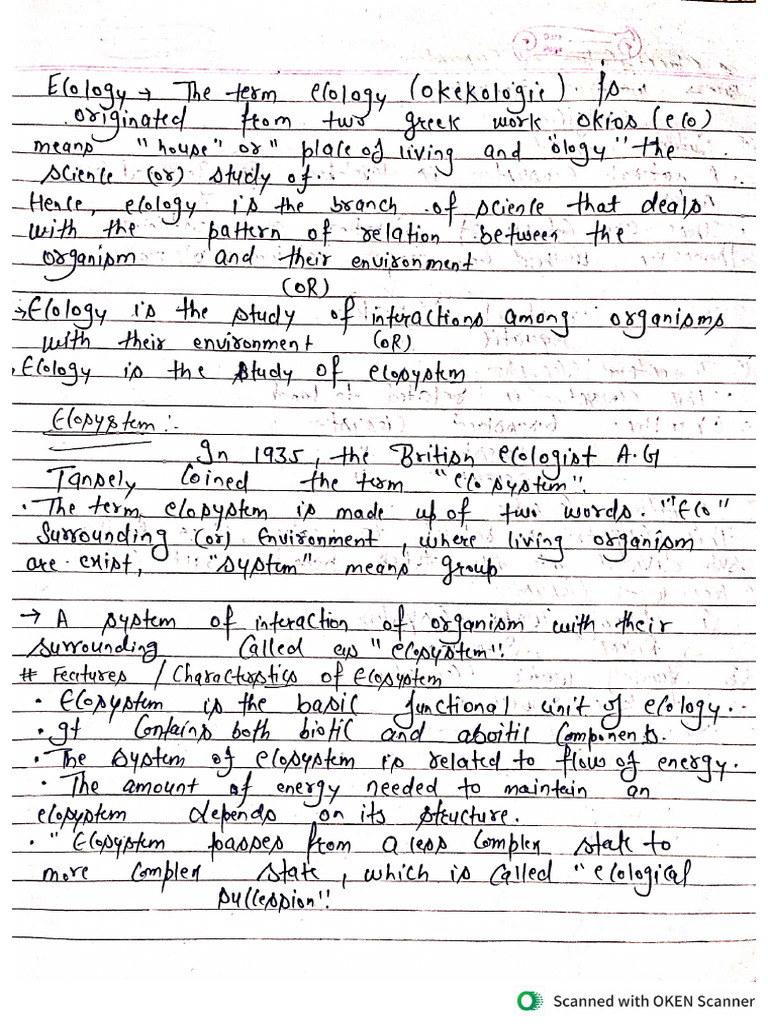 Ecology → The term ecology (okekologie). Is
originated from two greek work okios (eco)
means "house" or" place of living and "ology" the
science (or) study of.
Hence, ecology is the branch of science that deals
with the pattern of relation between the
organism and their environment
(OR)
→ Ecology is the study of interactions among organisms
with their environment (OR)
. Ecology is the study of ecosystem
Ecosystem :-
In 1935, the British ecologist A.G
Tansely Coined the term "eco system".
• The term, ecosystem is made up of two words. "Eco"
Surrounding (or) Environment, where living organism
are exist, "system" means group
→ A system of interaction of organism with their
surrounding Called as "ecosystem".
# Features / Characterstics of Ecosystem
• Ecosystem is the basic functional unit of ecology.
• It Contains both biotic and aboitic Components.
• The system of ecosystem is related to flow of energy.
• The amount of energy needed to maintain an
ecosystem depends on its structure.
• " Ecosystem passes from a less Complex state to
more Complex state, which is Called "ecological
succession".
Scanned with OKEN Scanner